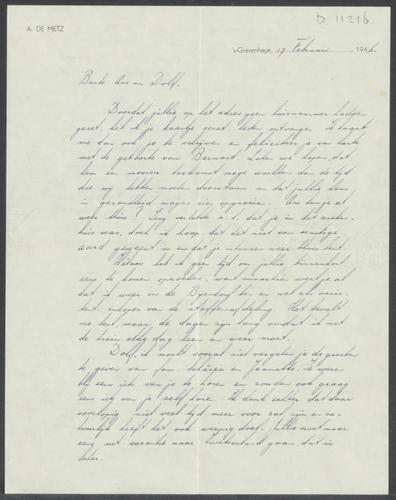 D 11216
A. DE METZ
's-Gravenhage, 17 Februari 1946.
Beste Ans en Dolf,
Doordat jullie op het adres geen huisnummer hadden
gezet, heb ik je kaartje eerst heden ontvangen. Ik haast
me dan ook je te schrijven en feliciteer je van harte
met de geboorte van Bernard. Laten we hopen, dat
hem een mooiere toekomst moge wachten dan de tijd
die wij hebben moeten doorstaan en dat jullie hem
in gezondheid mogen zien opgroeien. Ans ben je al
weer thuis? vertelde a.s. dat je in het zieken-
huis was, doch ik hoop, dat het niet van ernstige
aard geweest is en dat je intussen weer thuis bent.
Helaas heb ik geen tijd om jullie binnenkort
eens te komen opzoeken, want misschien weet je al
dat ik weer in de Bijenkorf ben en wel als
van de stoffenafdeling. Het bevalt
me best, maar de dagen zijn lang omdat ik met
de trein elke dag heen en weer moet.
Dolf, je moet vooral niet vergeten je de groeten
te geven van fam. en Jeannette. Ik
blij eens iets van je te horen en zouden ook graag
eens iets van je zelf horen. Ik denk echter dat daar
voorlopig niet veel tijd meer voor zal zijn en na-
tuurlijk heeft het ook weinig doel. Jullie moet maar
eens met vacantie naar Zwitserland gaan, dat is
beter.